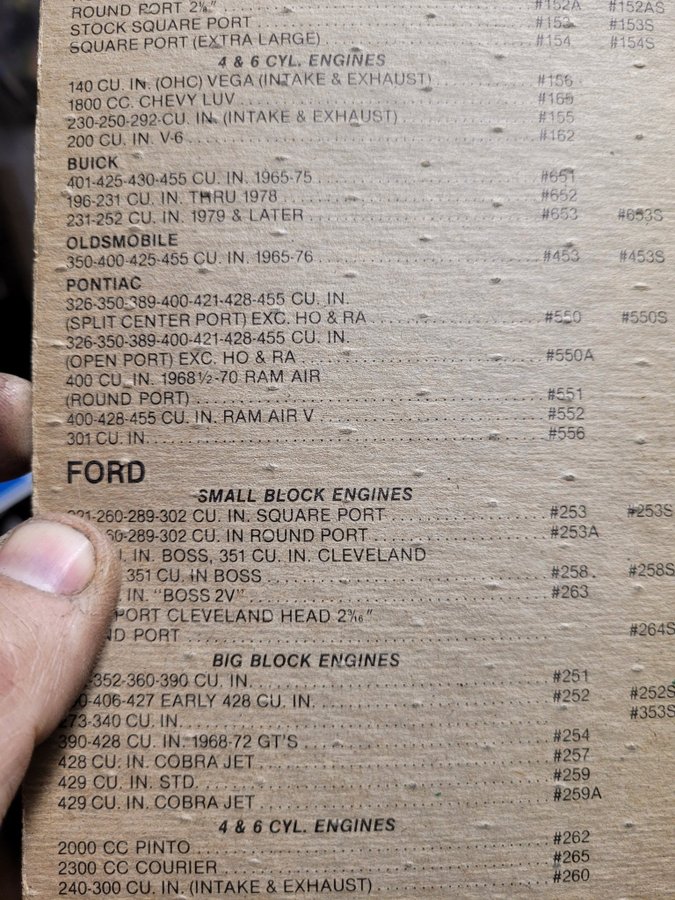 ROUND PORT 2⅛" #152A #152AS
STOCK SQUARE PORT #153 #153S
SQUARE PORT (EXTRA LARGE) #154 #154S
4 & 6 CYL. ENGINES
140 CU. IN. (OHC) VEGA (INTAKE & EXHAUST) #156
1800 CC. CHEVY LUV #165
230-250-292-CU. IN. (INTAKE & EXHAUST) #155
200 CU. IN. V-6 #162
BUICK
401-425-430-455 CU. IN. 1965-75 #651
196-231 CU. IN. THRU 1978 #652
231-252 CU. IN. 1979 & LATER #653 #653S
OLDSMOBILE
350-400-425-455 CU. IN. 1965-76 #453 #453S
PONTIAC
326-350-389-400-421-428-455 CU. IN.
(SPLIT CENTER PORT) EXC. HO & RA #550 #550S
326-350-389-400-421-428-455 CU. IN.
(OPEN PORT) EXC. HO & RA #550A
400 CU. IN. 1968½-70 RAM AIR
(ROUND PORT) #551
400-428-455 CU. IN. RAM AIR V #552
301 CU. IN. #556
FORD
SMALL BLOCK ENGINES
221-260-289-302 CU. IN. SQUARE PORT #253 #253S
60-289-302 CU. IN ROUND PORT #253A
IN. BOSS, 351 CU. IN. CLEVELAND
351 CU. IN BOSS #258. #258S
IN. "BOSS 2V" #263
PORT CLEVELAND HEAD 2³⁄₁₆"
ND PORT #264S
BIG BLOCK ENGINES
-352-360-390 CU. IN. #251
0-406-427 EARLY 428 CU. IN. #252 #252S
273-340 CU. IN. #353S
390-428 CU. IN. 1968-72 GT'S #254
428 CU. IN. COBRA JET #257
429 CU. IN. STD. #259
429 CU. IN. COBRA JET #259A
4 & 6 CYL. ENGINES
2000 CC PINTO #262
2300 CC COURIER #265
240-300 CU. IN. (INTAKE & EXHAUST) #260